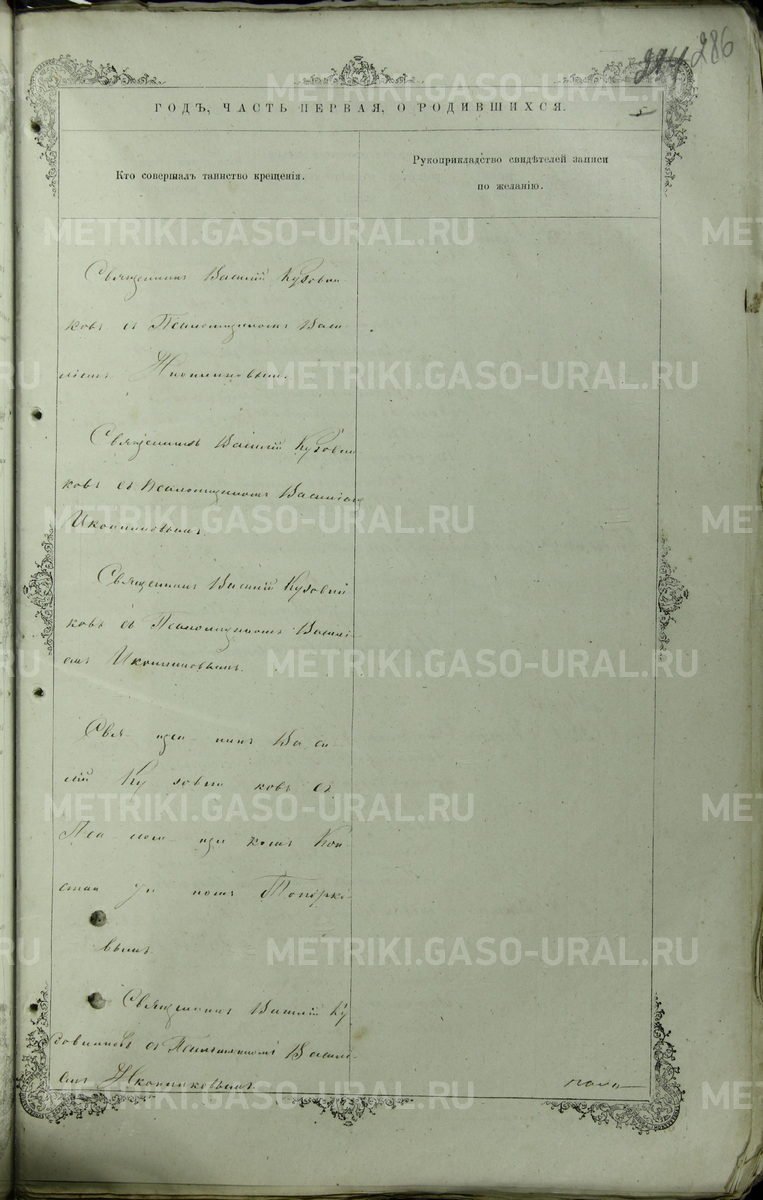 274 286
ГОДЪ, ЧАСТЬ ПЕРВАЯ, О РОДИВШИХСЯ.
Кто совершалъ таинство крещенія.
Рукоприкладство свидѣтелей записи
по желанію.
Священникъ Василій Кузовни-
ковъ съ Псаломщикомъ Васи-
ліемъ Иконниковымъ.
Священникъ Василій Кузовни
ковъ съ Псаломщикомъ Василіемъ
Иконниковымъ.
Священникъ Василій Кузовни
ковъ съ Псаломщикомъ Васили
емъ Иконниковымъ.
Священникъ Васи-
лій Кузовниковъ съ
Псаломщикомъ Кон-
стантиномъ Топорко-
вымъ.
Священникъ Василій Ку
зовниковъ съ Псаломщикомъ Васили-
емъ Иконниковымъ.
METRIKI.GASO-URAL.RU